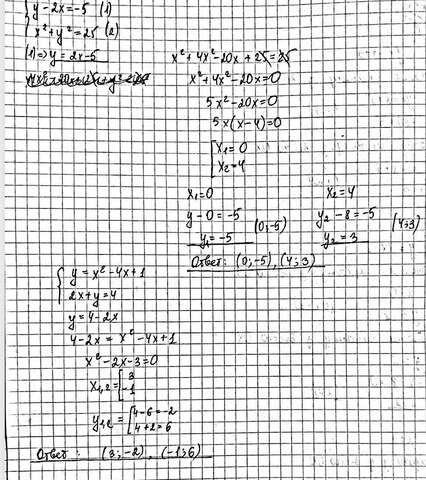 y - 2x = -5 (1)
x² + y² = 25 (2)
(1) => y = 2x - 5
x² + 4x² - 20x + 25 = 25
x² + 4x² - 20x = 0
5x² - 20x = 0
5x(x - 4) = 0
x₁ = 0
x₂ = 4
x₁ = 0
y - 0 = -5
y₁ = -5 (0; -5)
x₂ = 4
y₂ - 8 = -5
y₂ = 3 (4; 3)
Ответ: (0; -5), (4; 3)
y = x² - 4x + 1
2x + y = 4
y = 4 - 2x
4 - 2x = x² - 4x + 1
x² - 2x - 3 = 0
x₁,₂ = [3
-1
y₁,₂ = [4 - 6 = -2
4 + 2 = 6
Ответ: (3; -2), (-1; 6)